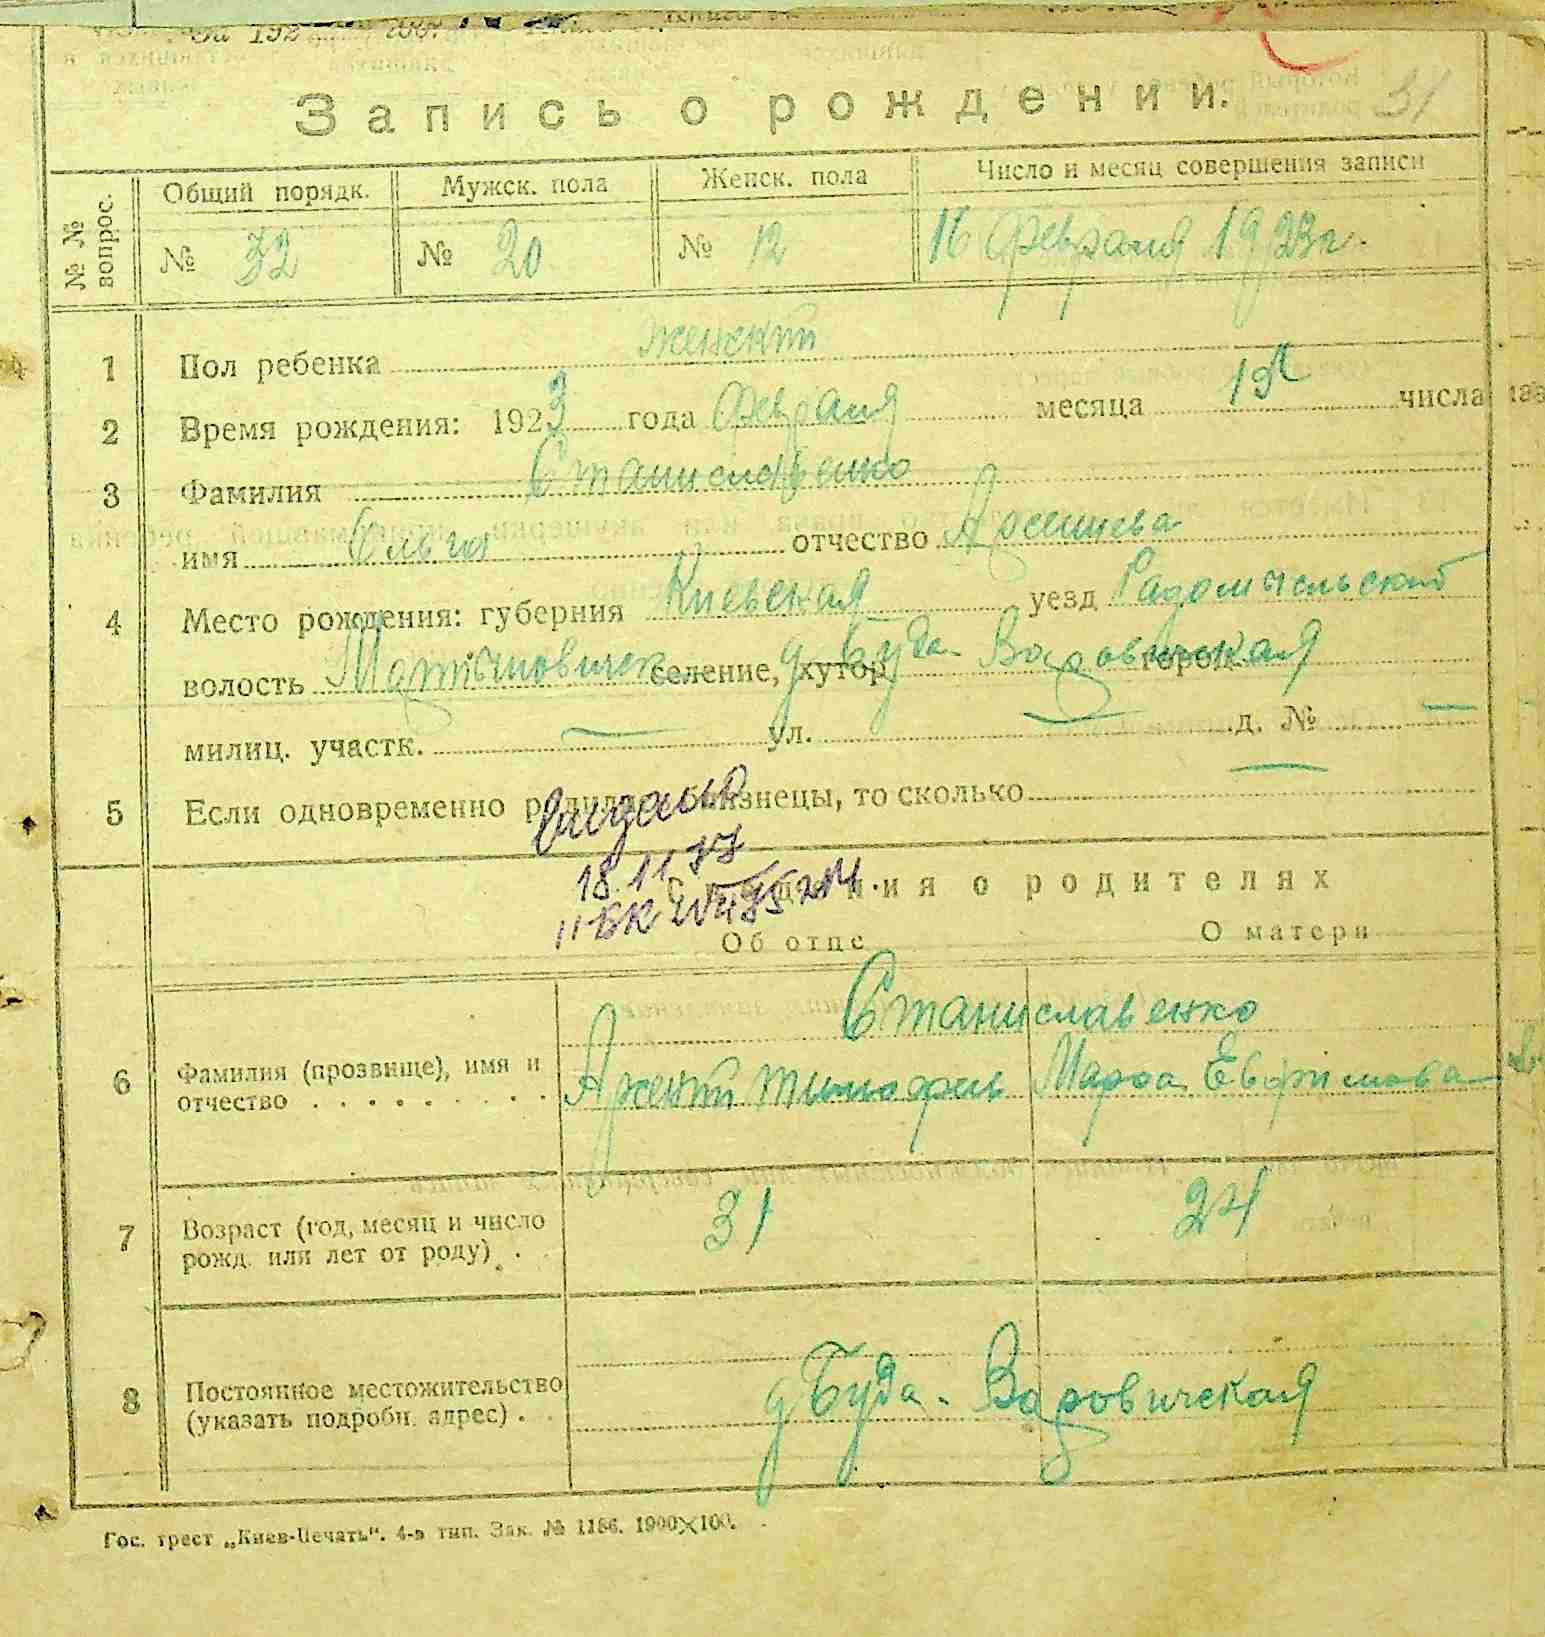 31
Запись о рождении.
№ № вопрос.
Общий порядк. Мужск. пола Женск. пола Число и месяц совершения записи
№ 32 № 20 № 12 16 февраля 1923г.
1 Пол ребенка женский
2 Время рождения: 1923 года февраля месяца 1го числа
3 Фамилия Станиславенко
имя Ольга отчество Арсениева
4 Место рождения: губерния Киевская уезд Радомысльский
волость селение, хутор д Буда-Варовичская город
милиц. участк. — ул. — д. № —
5 Если одновременно родились близнецы, то сколько —
видано
18.11.77
Сведения о родителях
Об отце О матери
Станиславенко
6 Фамилия (прозвище), имя и отчество Арсений Тимофеев Марфа Евфимова
7 Возраст (год, месяц и число рожд. или лет от роду) 31 24
8 Постоянное местожительство (указать подробн. адрес) д Буда-Варовичская
Гос. трест „Киев-Печать". 4-я тип. Зак. № 1186. 1900×100.